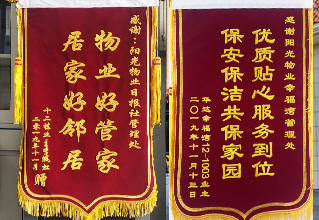 感谢:阳光物业日报社管理处
物业好管家
居家好邻居
十二栋业主
二零一九年十一月 赠
感谢阳光物业幸福湾管理处
优质贴心服务到位
保安保洁共保家园
华达幸福湾12-1003业主
二〇一九年十一月十三日